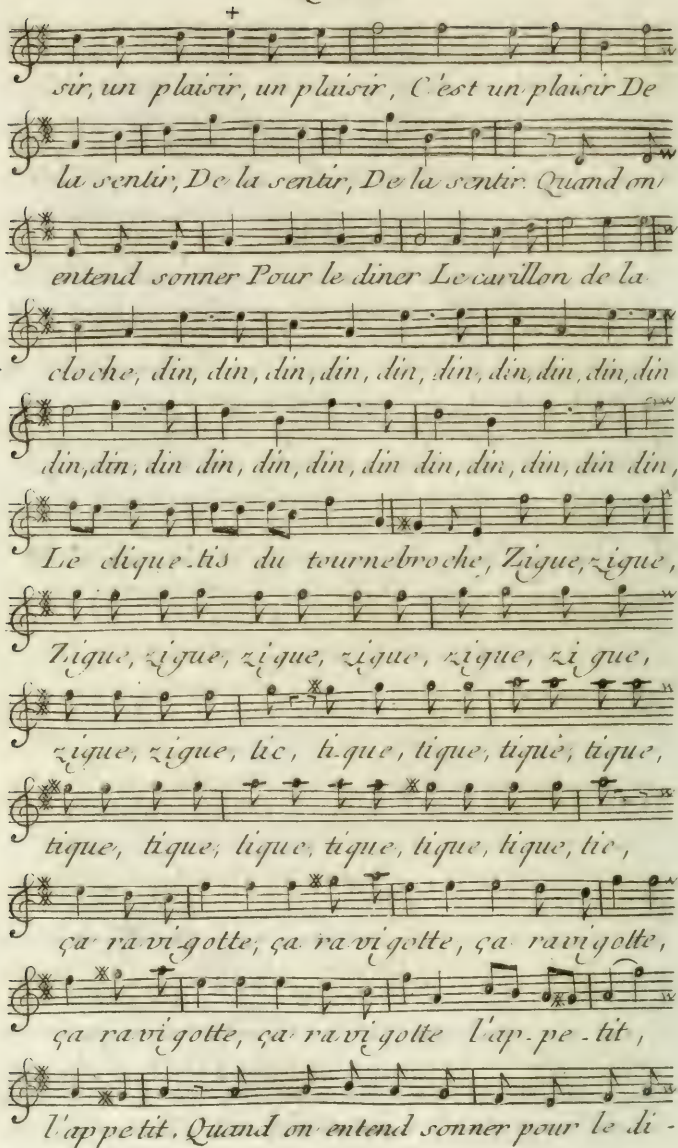 sir, un plaisir, un plaisir, C'est un plaisir De
la sentir, De la sentir, De la sentir. Quand on
entend sonner Pour le diner Le carillon de la
cloche, din, din, din, din, din, din, din, din, din, din
din, din, din din, din, din, din din, din, din, din din,
Le clique-tis du tournebroche, Zigue, zigue,
Zigue, zigue, zigue, zigue, zigue, zi gue,
zigue, zigue, tic, tique, tique, tique, tique,
tique, tique, tique, tique, tique, tique, tic,
ça ravigotte, ça ravigotte, ça ravigotte,
ça ravigotte, ça ravigotte l'ap-pe-tit,
l'appetit. Quand on entend sonner pour le di-